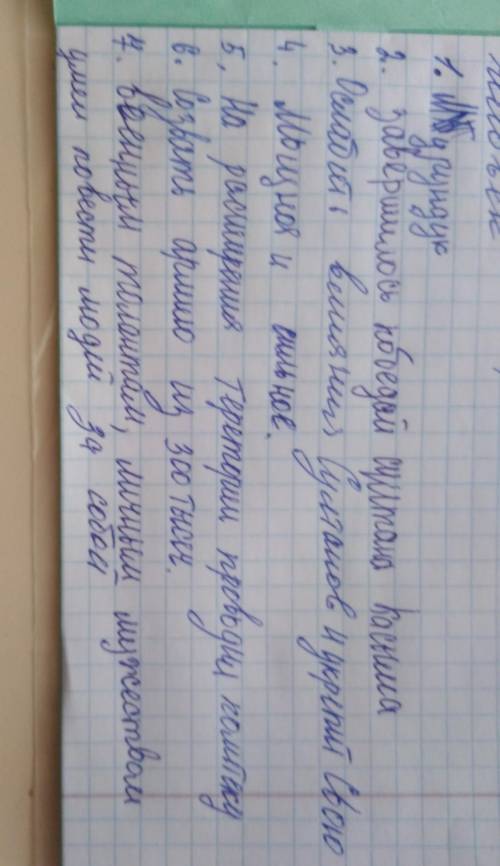 1. Бурундук
2. завершилось победой султана Касыма
3. Ослабить влияния Султанов и укрепил свою
4. Мощная и сильное.
5. На расширения территории проводил политику
6. Создать армию из 300 тысяч.
7. военным талантам, личный мужеством
умел повести людей за собой